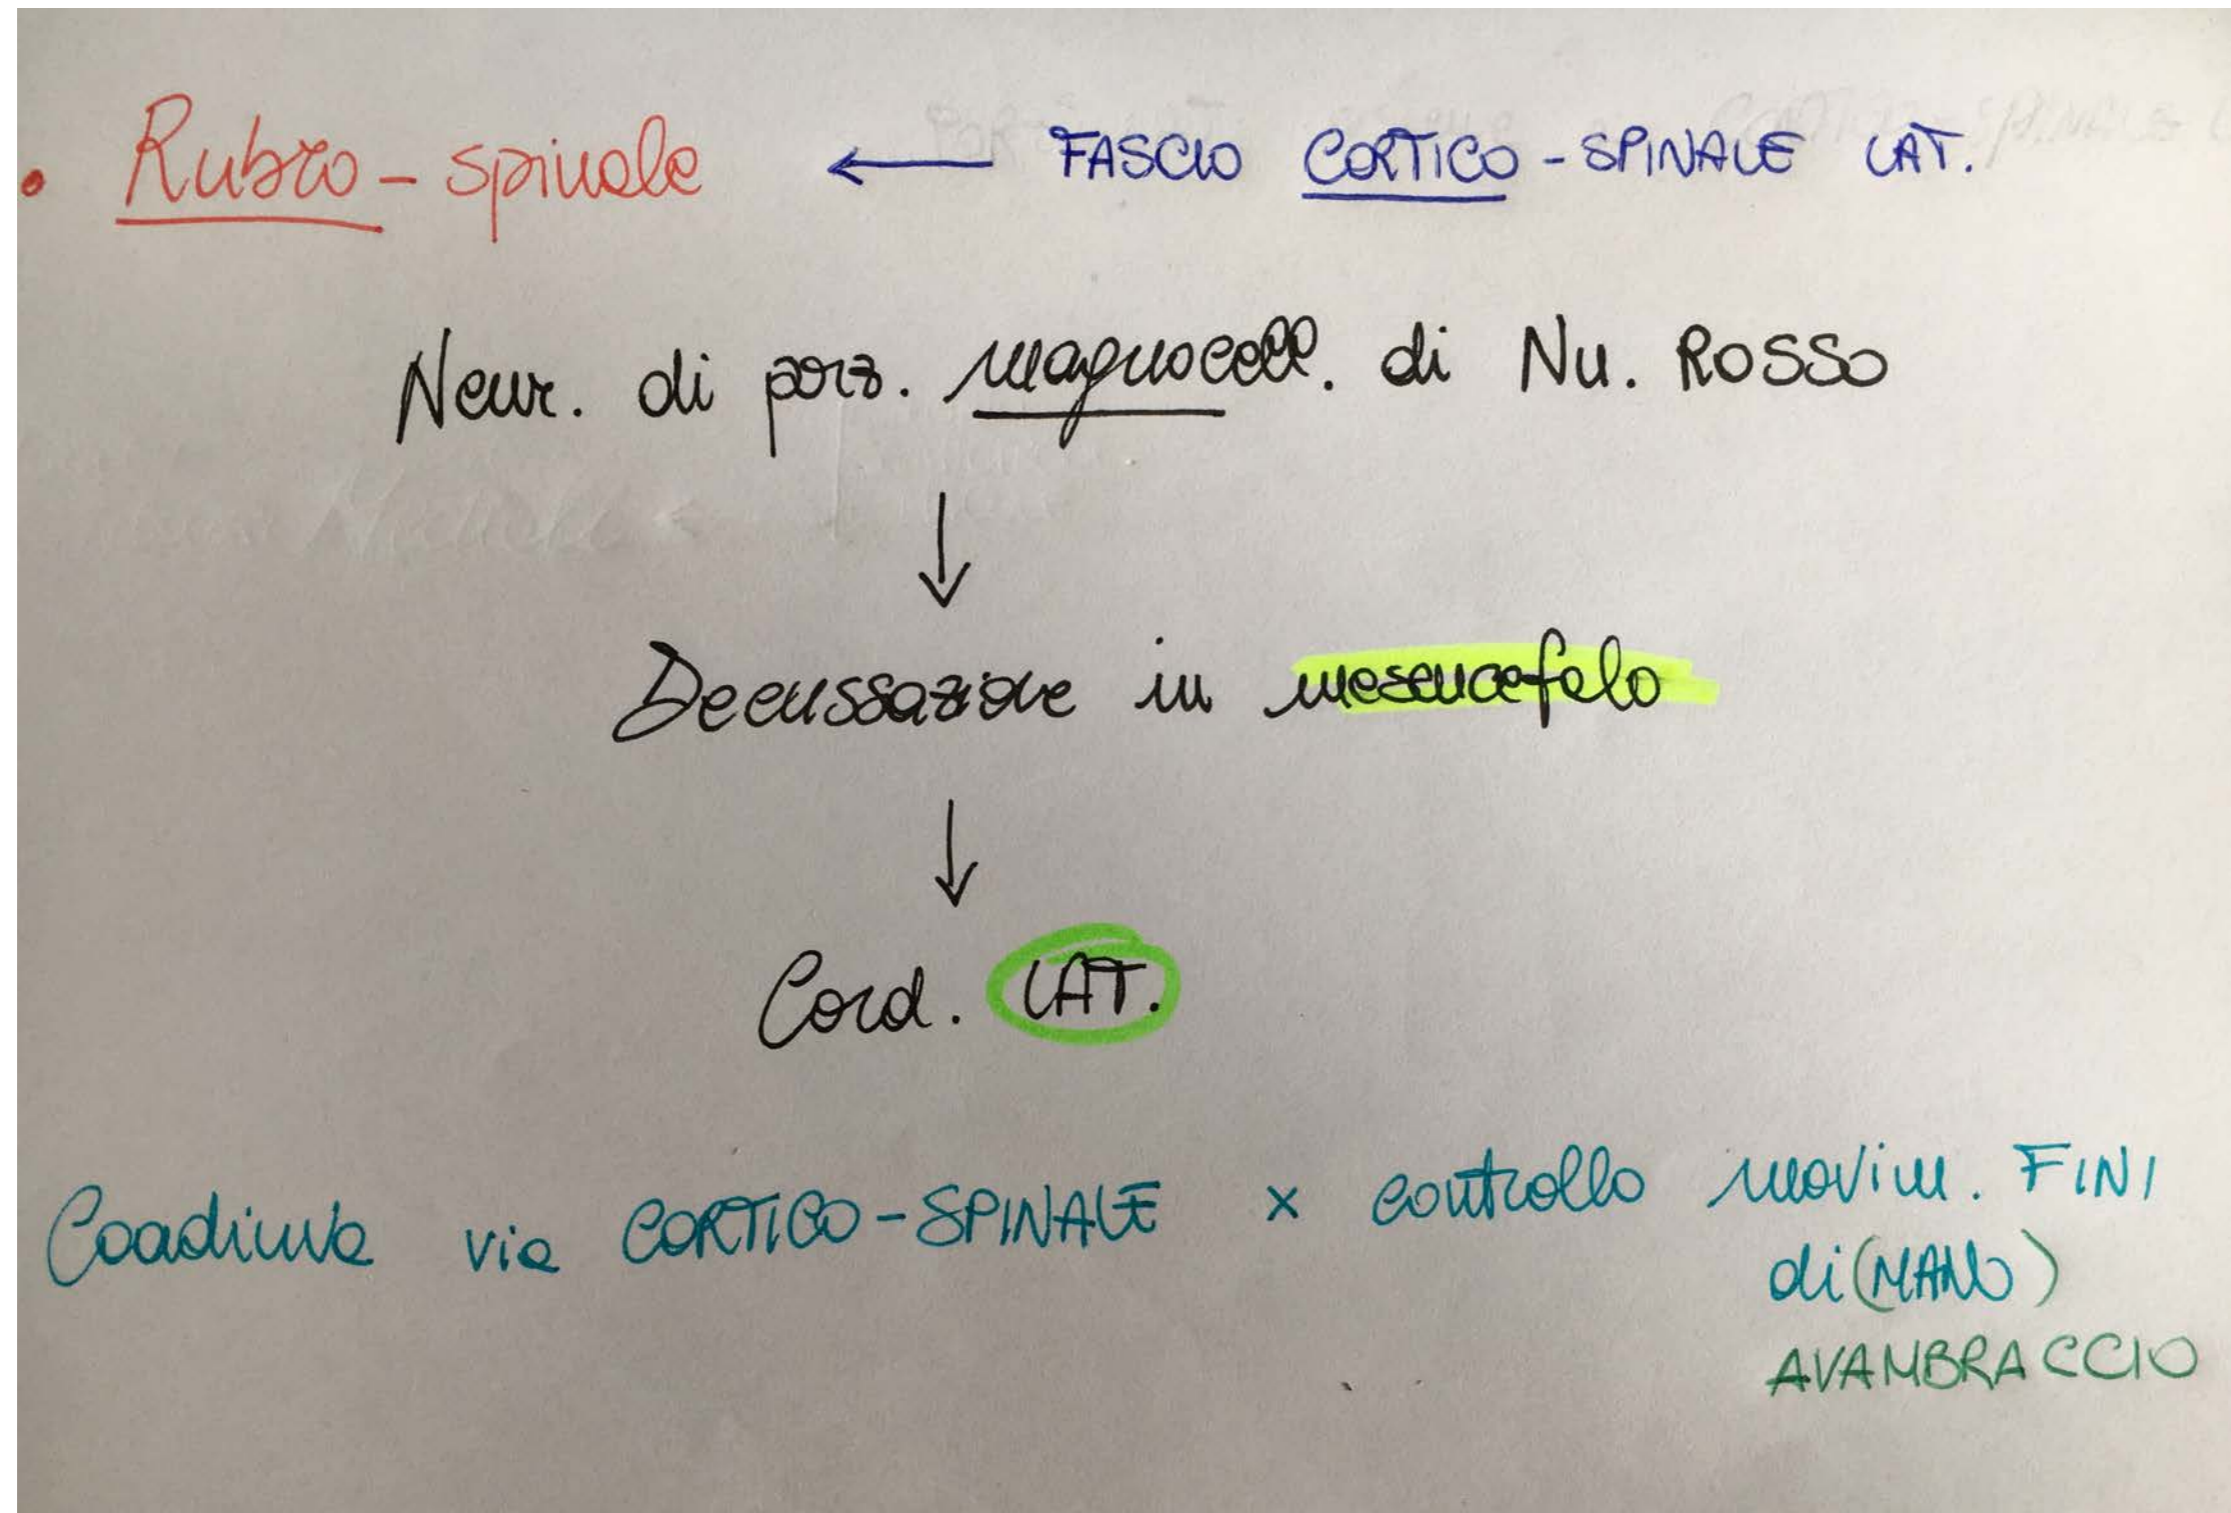 • Rubro-spinale ← FASCIO CORTICO-SPINALE LAT.
Neur. di porz. magnocell. di Nu. ROSSO
↓
Decussazione in mesencefalo
↓
Cord. LAT.
Coadiuva via CORTICO-SPINALE x controllo movim. FINI
di (MANO)
AVAMBRACCIO